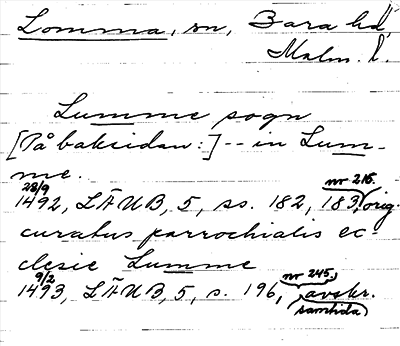 Lomma, sn, Bara hd,
Malm. l.
Lumme sogn
[På baksidan:] -- in Lum-
me.
28/9 nr 216.
1492, LÄUB, 5, ss. 182, 183, orig.
curatus parrochialis ec-
clesie Lumme
9/2 nr 245.
1493, LÄUB, 5, s. 196, avskr.
samtida